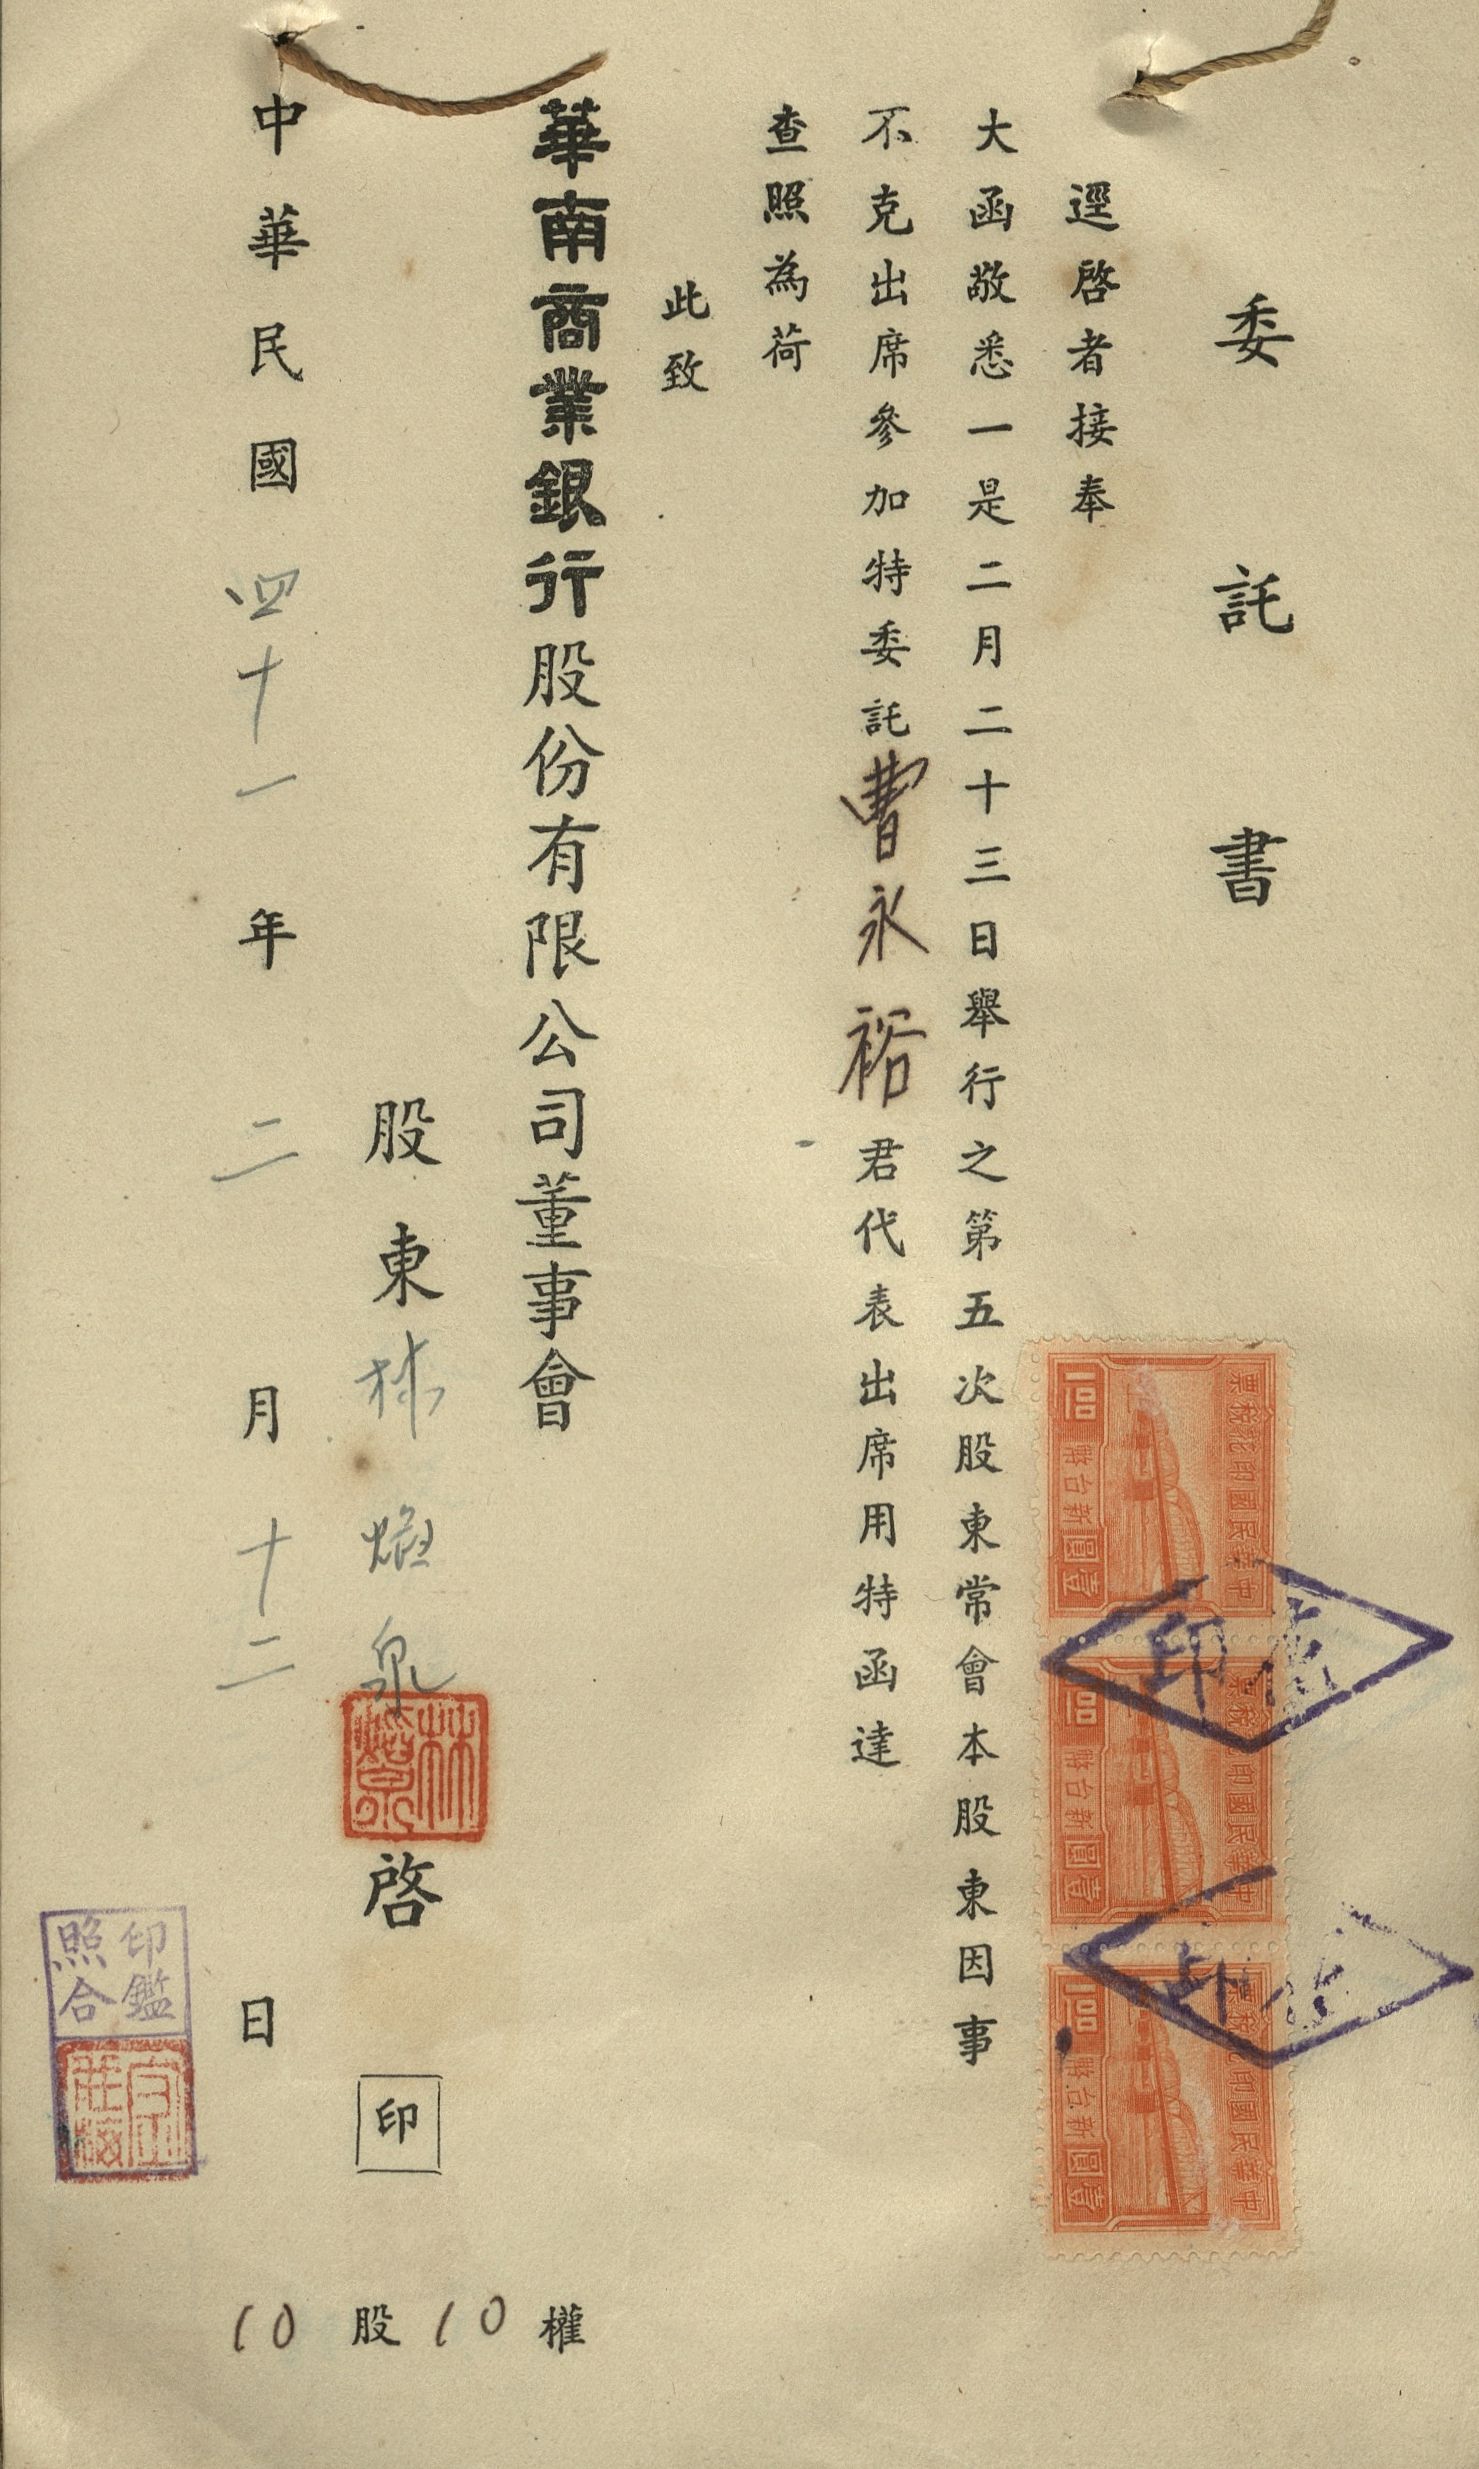 委託書
逕啓者接奉
大函敬悉一是二月二十三日舉行之第五次股東常會本股東因事
不克出席參加特委託曹永裕君代表出席用特函達
查照為荷
此致
華南商業銀行股份有限公司董事會
股東林燈泉啓 印
中華民國四十一年二月十二日
10股10權
中華民國印花稅票
新台幣壹圓
1.00
中華民國印花稅票
新台幣壹圓
1.00
中華民國印花稅票
新台幣壹圓
1.00
印鑑
照合